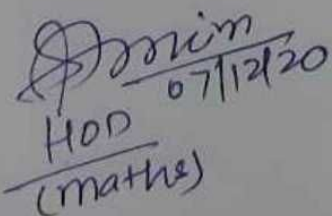 07/12/20
HOD
(maths)